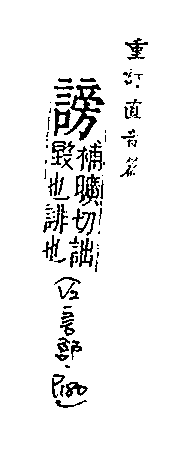 重訂直音篇
謗
補曠切詘
毀也誹也
(V2言部.P180)